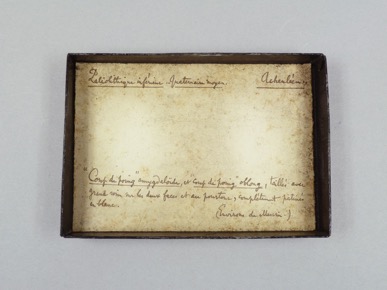 Paléolithique inférieur Quaternaire moyen. Acheuléen
"Coup de poing" amygdaloïde, et "coup de poing" oblong, taillés avec
grand soin sur les deux faces et au pourtour, complètement patinés
en blanc.
(Environs de